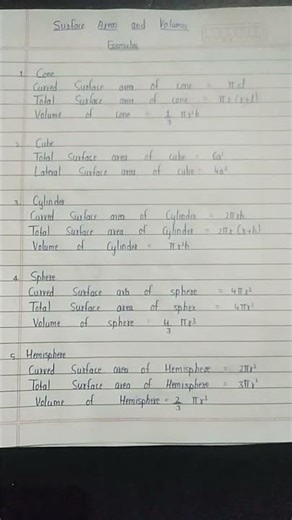 Surface Area and Volume
Formulas
1. Cone
Curved Surface area of cone = πrl
Total Surface area of cone = πr (r+l)
Volume of cone = 1/3 πr²h
2. Cube
Total Surface area of cube = 6a²
Lateral Surface area of cube = 4a²
3. Cylinder
Curved Surface area of Cylinder = 2πrh
Total Surface area of Cylinder = 2πr (r+h)
Volume of Cylinder = πr²h
4. Sphere
Curved Surface of sphere = 4πr²
Total Surface area of spher = 4πr²
Volume of sphere = 4/3 πr³
5. Hemisphere
Curved Surface area of Hemisphere = 2πr²
Total Surface area of Hemisphere = 3πr²
Volume of Hemisphere = 2/3 πr³